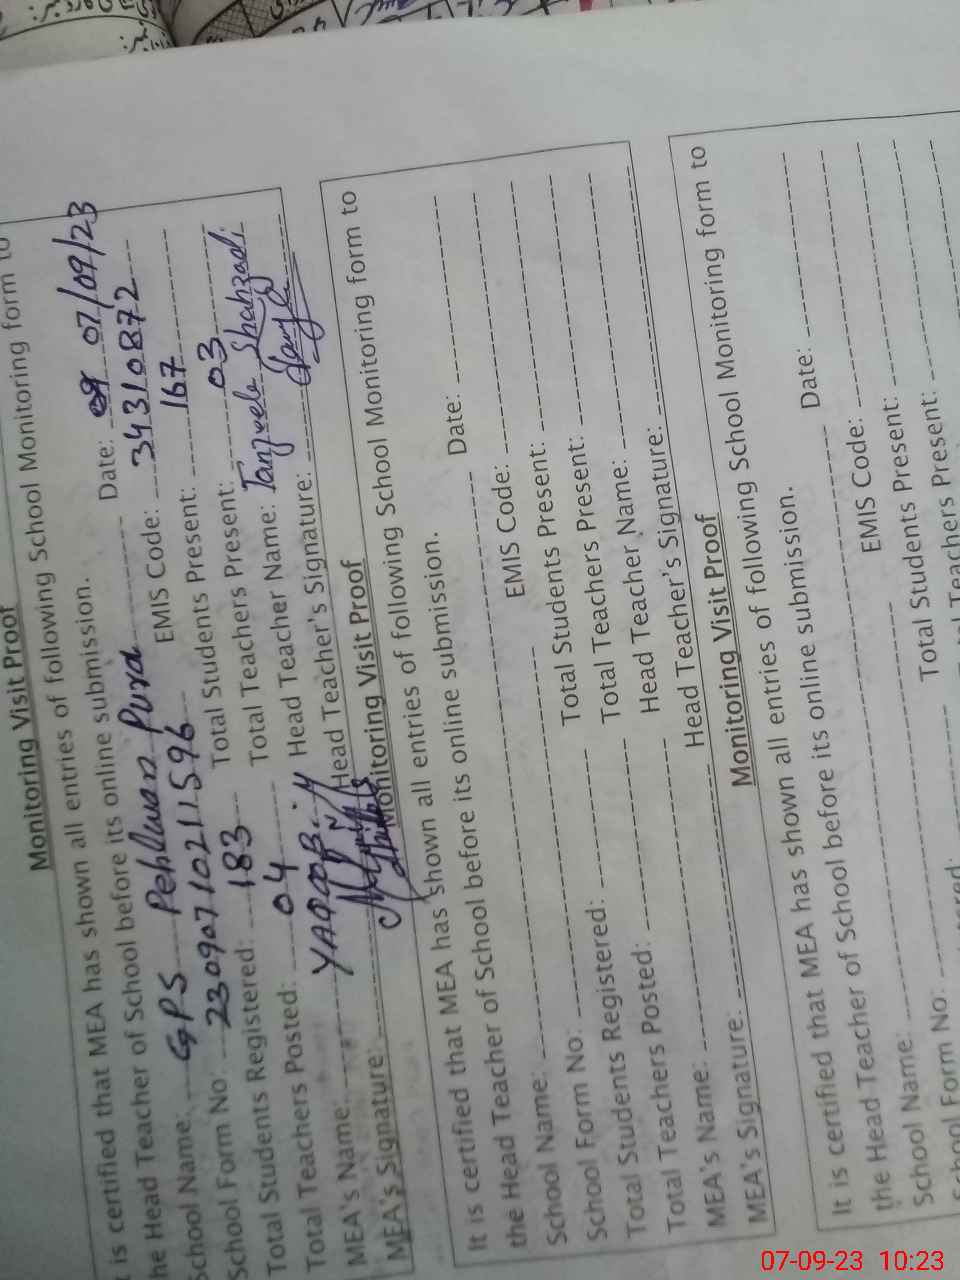 Monitoring Visit Proof
t is certified that MEA has shown all entries of following School Monitoring form to
he Head Teacher of School before its online submission. Date: 07/09/23
School Name: GPS Pehlwan Pura EMIS Code: 34310872
School Form No: 23090710211596 Total Students Present: 167
Total Students Registered: 183 Total Teachers Present: 03
Total Teachers Posted: 04 Head Teacher Name: Tanzeela Shahzadi
MEA's Name: YAQOOB Head Teacher's Signature:
MEA's Signature:
Monitoring Visit Proof
It is certified that MEA has shown all entries of following School Monitoring form to
the Head Teacher of School before its online submission. Date:
School Name: EMIS Code:
School Form No: Total Students Present:
Total Students Registered: Total Teachers Present:
Total Teachers Posted: Head Teacher Name:
MEA's Name: Head Teacher's Signature:
MEA's Signature:
Monitoring Visit Proof
It is certified that MEA has shown all entries of following School Monitoring form to
the Head Teacher of School before its online submission. Date:
School Name: EMIS Code:
School Form No: Total Students Present:
Teachers Present:
07-09-23 10:23